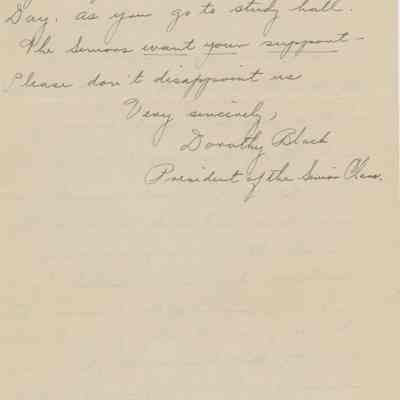 Day, as you go to study hall.
The Seniors want your support -
Please don't disappoint us
Very sincerely,
Dorothy Black
President of the Senior Class.